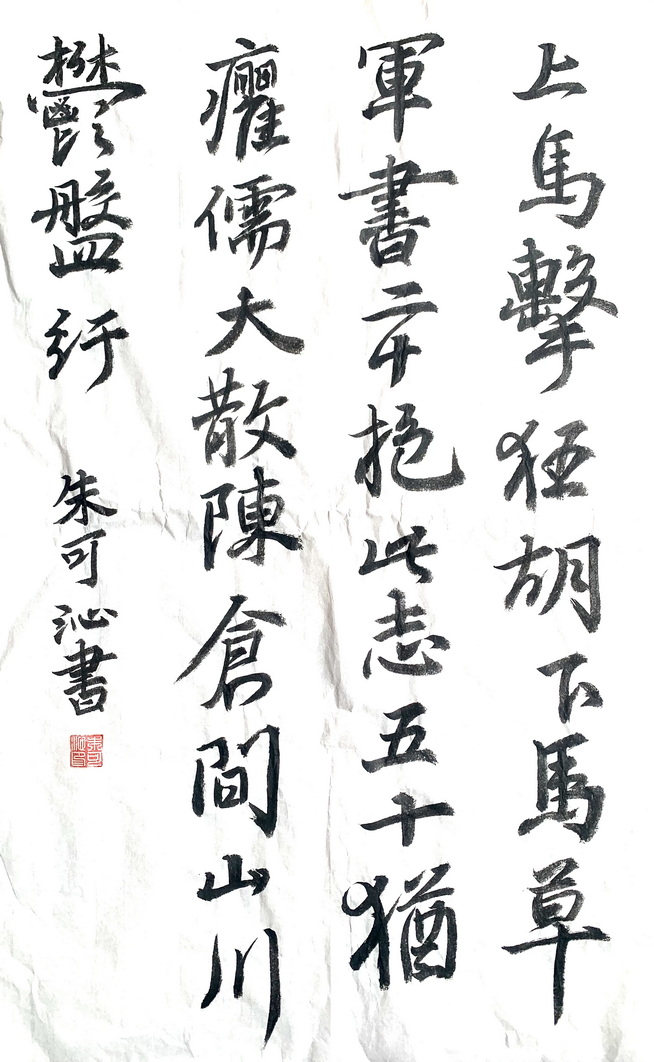 上馬擊狂胡下馬草
軍書二十抱此志五十猶
癯儒大散陳倉間山川
鬱盤紆
朱可沁書
朱可沁印